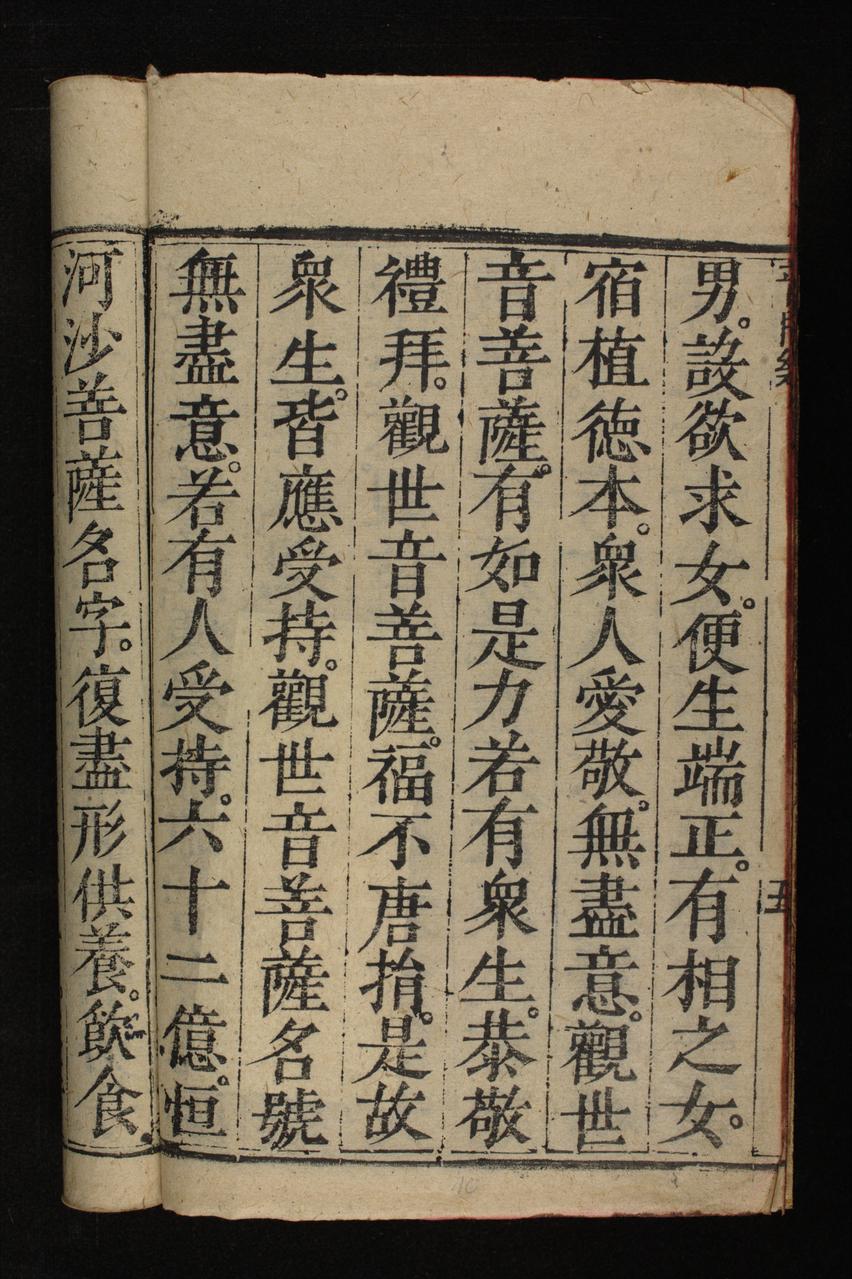 男。設欲求女。便生端正。有相之女。
宿植德本。衆人愛敬。無盡意。觀世
音菩薩。有如是力若有衆生。恭敬
禮拜。觀世音菩薩。福不唐捐。是故
衆生。皆應受持。觀世音菩薩名號
無盡意。若有人受持。六十二億。恒
河沙菩薩名字。復盡形供養。飲食